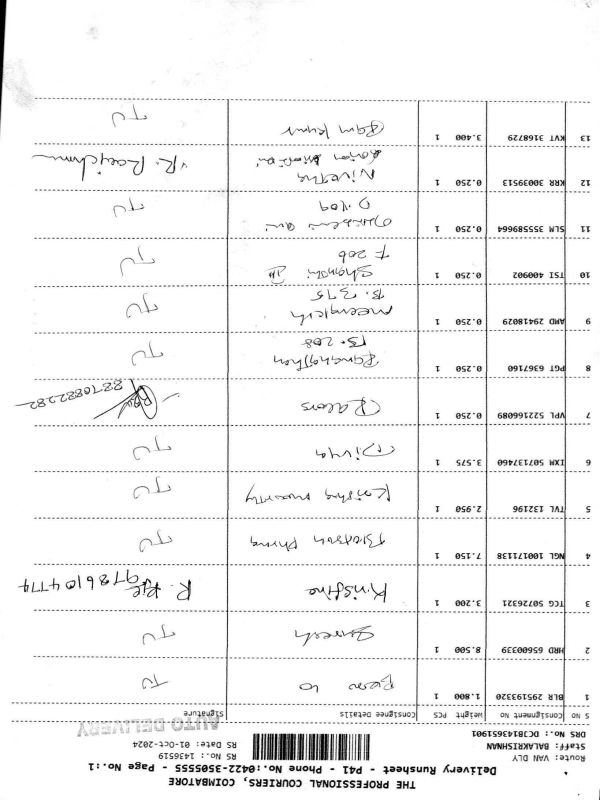 THE PROFESSIONAL COURIERS, COIMBATORE
Delivery Runsheet - P41 - Phone No.:0422-3505555 - Page No.:1
Route: VAN DLY
RS No.: 1436519
Staff: BALAKRISHNAN
RS Date: 01-Oct-2024
DRS No.: DCJB143651901
AUTO DELIVERY
S NO Consignment No Weight PCS Consignee Details Signature
1 BLR 295193320 1.800 1 TU
2 HRD 65600339 8.500 1 Suresh TU
3 TCG 50726321 3.200 1 Kristina 9786104774
4 NGL 100171138 7.150 1 TU
5 TVL 132196 2.950 1 Krishna moorthy TU
6 IXM 507137460 3.575 1 Divya TU
7 VPL 522166089 0.250 1 8870882282
8 PGT 6367160 0.250 1 B. 208 TU
9 AMD 29418029 0.250 1 B. 375 TU
10 TSI 400902 0.250 1 F 206 TU
11 SLM 355589664 0.250 1 D. 409 TU
12 KRR 30039513 0.250 1 Nivetha
13 KVT 3168729 3.400 1 Ram Kumar TU